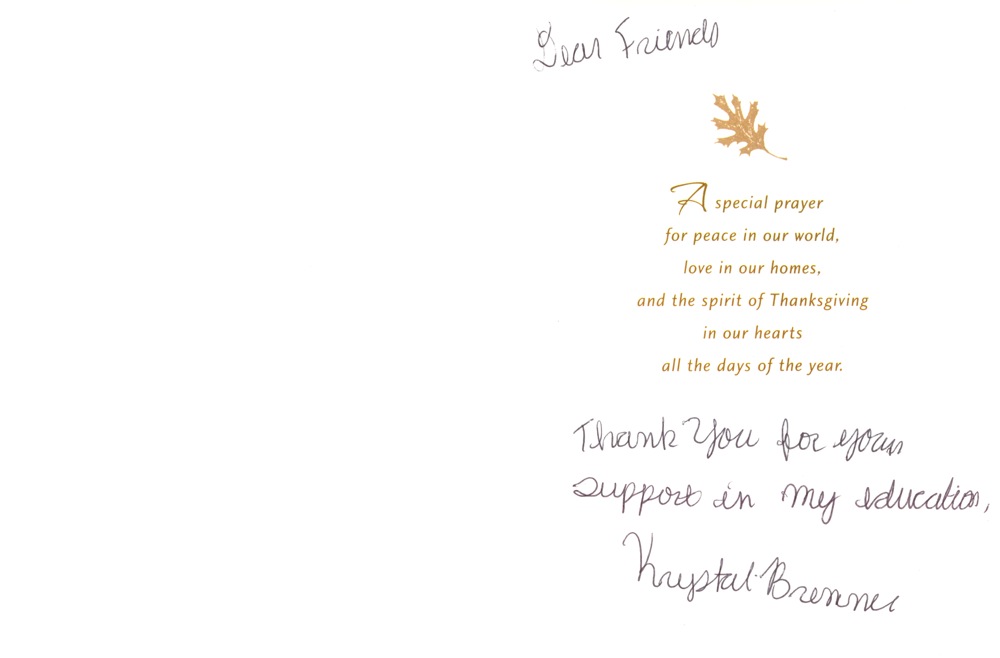 Dear Friends
A special prayer
for peace in our world,
love in our homes,
and the spirit of Thanksgiving
in our hearts
all the days of the year.
Thank You for your
support in my education,
Krystal Brenner